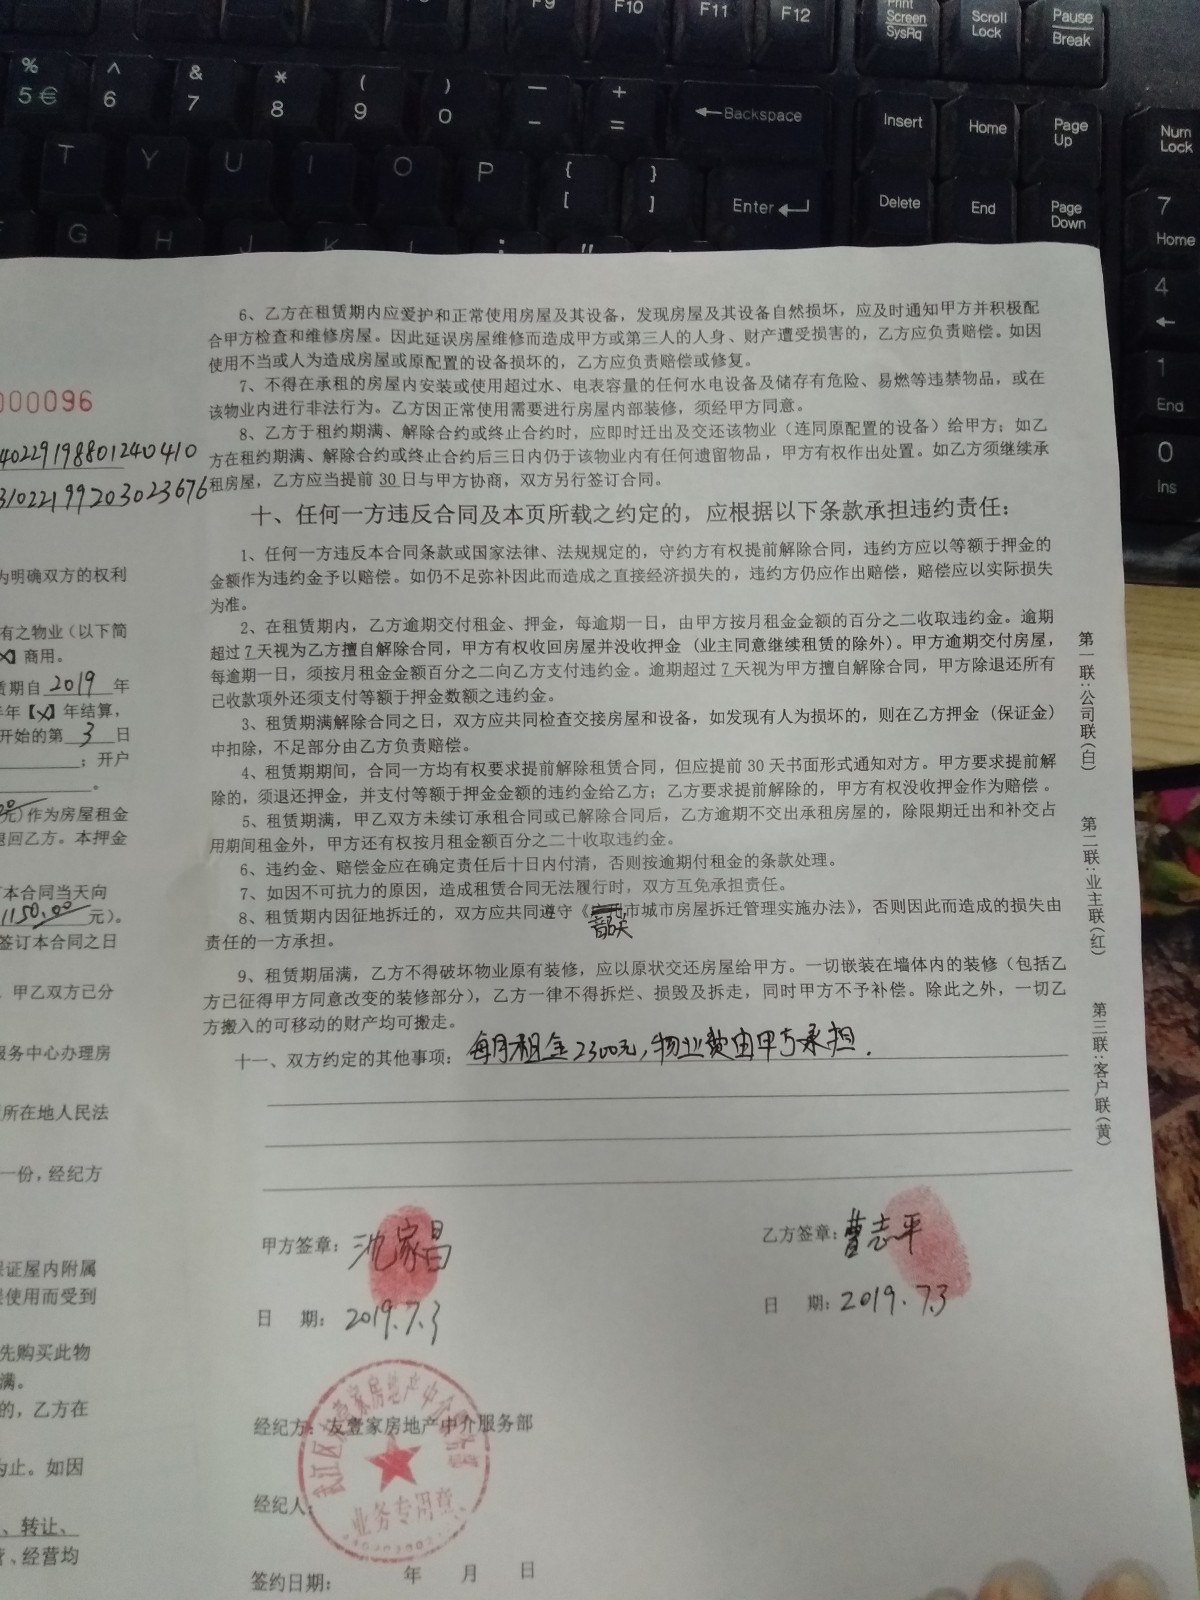 F9 F10 F11 F12 Print Screen SysRq Scroll Lock Pause Break
% 5 € ^ 6 & 7 * 8 ( 9 ) 0 — - + = ←Backspace Insert Home Page Up Num Lock
T Y U I O P { [ } ] Enter Delete End Page Down 7 Home
G H J K L
4 ←
1 End
0 Ins
000096
40229198801240410
310221199203023676
为明确双方的权利
有之物业（以下简
【X】商用。
赁期自2019年
半年【X】年结算，
开始的第3日
；开户
。
元）作为房屋租金
退回乙方。本押金
本合同当天向
1150.00元）。
签订本合同之日
，甲乙双方已分
服务中心办理房
所在地人民法
一份，经纪方
保证屋内附属
使用而受到
先购买此物
满。
的，乙方在
为止。如因
、转让、
营、经营均
6、乙方在租赁期内应爱护和正常使用房屋及其设备，发现房屋及其设备自然损坏，应及时通知甲方并积极配
合甲方检查和维修房屋。因此延误房屋维修而造成甲方或第三人的人身、财产遭受损害的，乙方应负责赔偿。如因
使用不当或人为造成房屋或原配置的设备损坏的，乙方应负责赔偿或修复。
7、不得在承租的房屋内安装或使用超过水、电表容量的任何水电设备及储存有危险、易燃等违禁物品，或在
该物业内进行非法行为。乙方因正常使用需要进行房屋内部装修，须经甲方同意。
8、乙方于租约期满、解除合约或终止合约时，应即时迁出及交还该物业（连同原配置的设备）给甲方；如乙
方在租约期满、解除合约或终止合约后三日内仍于该物业内有任何遗留物品，甲方有权作出处置。如乙方须继续承
租房屋，乙方应当提前30日与甲方协商，双方另行签订合同。
十、任何一方违反合同及本页所载之约定的，应根据以下条款承担违约责任：
1、任何一方违反本合同条款或国家法律、法规规定的，守约方有权提前解除合同，违约方应以等额于押金的
金额作为违约金予以赔偿。如仍不足弥补因此而造成之直接经济损失的，违约方仍应作出赔偿，赔偿应以实际损失
为准。
2、在租赁期内，乙方逾期交付租金、押金，每逾期一日，由甲方按月租金金额的百分之二收取违约金。逾期
超过7天视为乙方擅自解除合同，甲方有权收回房屋并没收押金（业主同意继续租赁的除外）。甲方逾期交付房屋，
每逾期一日，须按月租金金额百分之二向乙方支付违约金。逾期超过7天视为甲方擅自解除合同，甲方除退还所有
已收款项外还须支付等额于押金数额之违约金。
3、租赁期满解除合同之日，双方应共同检查交接房屋和设备，如发现有人为损坏的，则在乙方押金（保证金）
中扣除，不足部分由乙方负责赔偿。
4、租赁期期间，合同一方均有权要求提前解除租赁合同，但应提前30天书面形式通知对方。甲方要求提前解
除的，须退还押金，并支付等额于押金金额的违约金给乙方；乙方要求提前解除的，甲方有权没收押金作为赔偿。
5、租赁期满，甲乙双方未续订承租合同或已解除合同后，乙方逾期不交出承租房屋的，除限期迁出和补交占
用期间租金外，甲方还有权按月租金额百分之二十收取违约金。
6、违约金、赔偿金应在确定责任后十日内付清，否则按逾期付租金的条款处理。
7、如因不可抗力的原因，造成租赁合同无法履行时，双方互免承担责任。
8、租赁期内因征地拆迁的，双方应共同遵守《韶关市城市房屋拆迁管理实施办法》，否则因此而造成的损失由
责任的一方承担。
9、租赁期届满，乙方不得破坏物业原有装修，应以原状交还房屋给甲方。一切嵌装在墙体内的装修（包括乙
方已征得甲方同意改变的装修部分），乙方一律不得拆烂、损毁及拆走，同时甲方不予补偿。除此之外，一切乙
方搬入的可移动的财产均可搬走。
十一、双方约定的其他事项：每月租金2300元，物业费由甲方承担.
甲方签章：沈家昌
乙方签章：曹志平
日 期：2019.7.3
日 期：2019.7.3
经纪方：友壹家房地产中介服务部
经纪人：
签约日期： 年 月 日
武江区友壹家房地产中介服务部
业务专用章
第一联：公司联（白）
第二联：业主联（红）
第三联：客户联（黄）